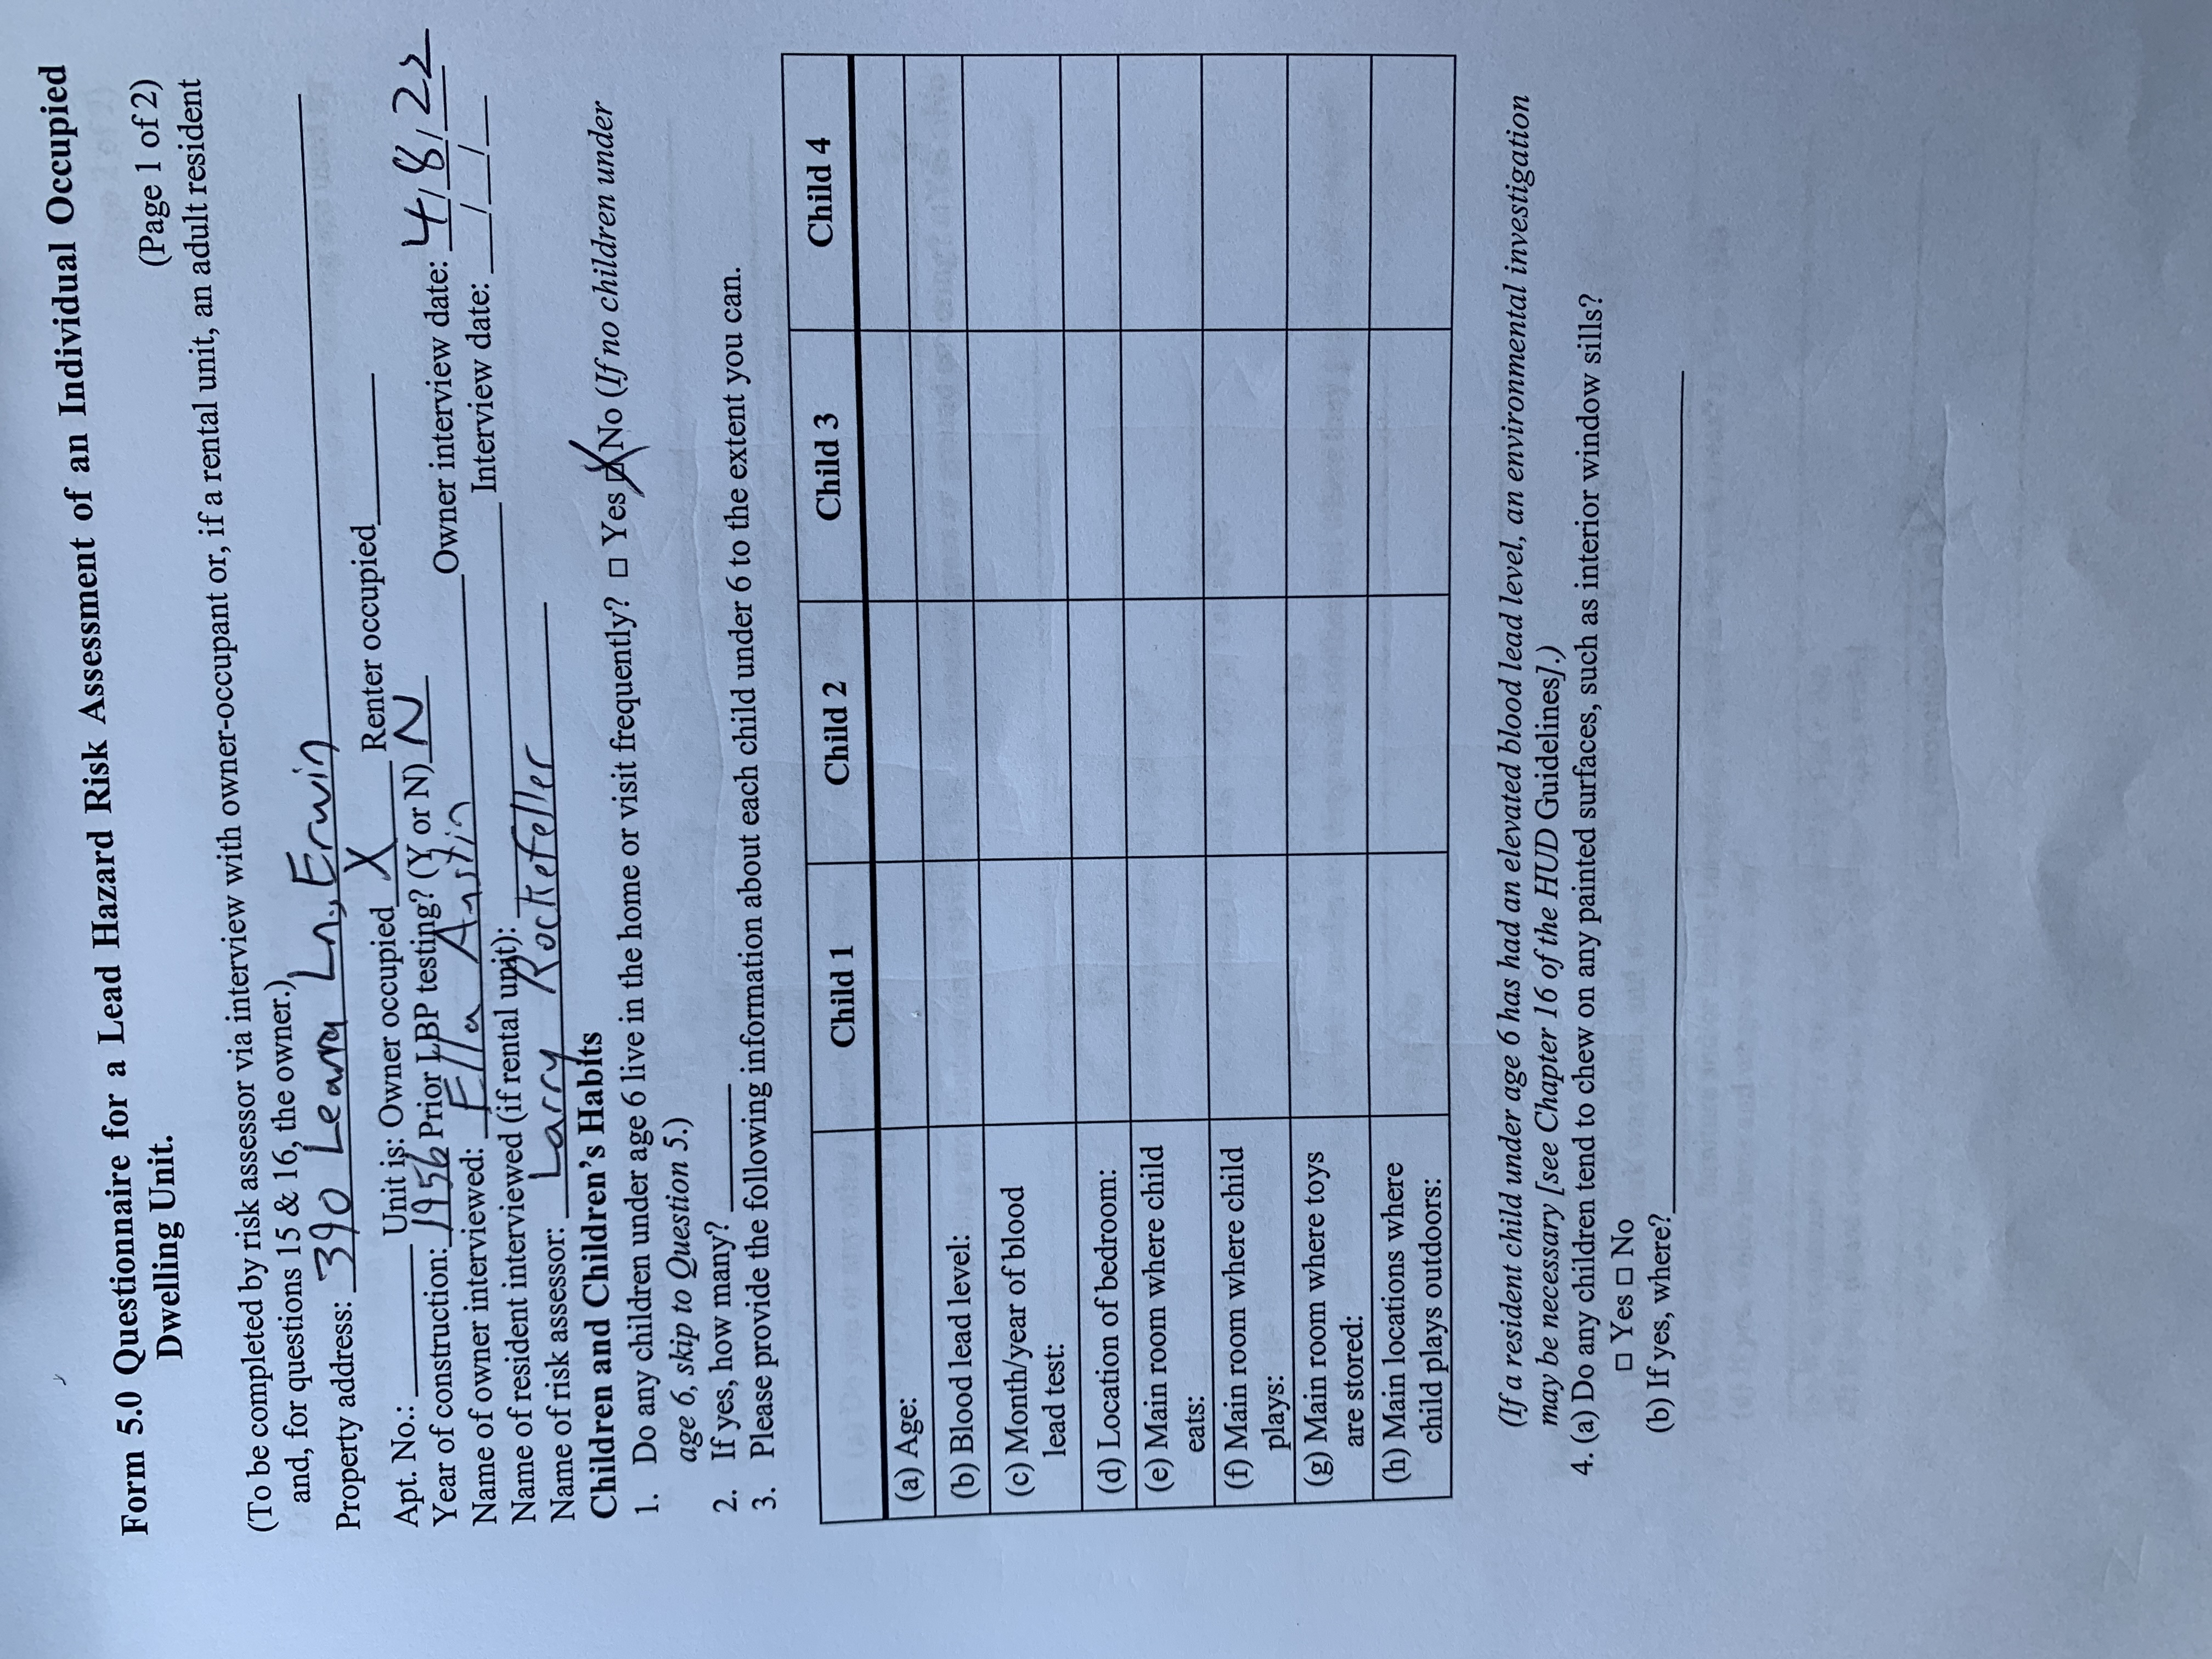 Form 5.0 Questionnaire for a Lead Hazard Risk Assessment of an Individual Occupied
Dwelling Unit.
(Page 1 of 2)
(To be completed by risk assessor via interview with owner-occupant or, if a rental unit, an adult resident
and, for questions 15 & 16, the owner.)
Property address: 390 Leanna Ln., Erwin
Apt. No.: ________ Unit is: Owner occupied X Renter occupied________
Year of construction: 1956 Prior LBP testing? (Y or N) N
Name of owner interviewed: Ella Austin Owner interview date: 4/8/22
Name of resident interviewed (if rental unit): ________ Interview date: __/__/__
Name of risk assessor: Larry Rockefeller
Children and Children's Habits
1. Do any children under age 6 live in the home or visit frequently? □ Yes ☒ No (If no children under
age 6, skip to Question 5.)
2. If yes, how many? ________
3. Please provide the following information about each child under 6 to the extent you can.
Child 1 Child 2 Child 3 Child 4
(a) Age:
(b) Blood lead level:
(c) Month/year of blood
lead test:
(d) Location of bedroom:
(e) Main room where child
eats:
(f) Main room where child
plays:
(g) Main room where toys
are stored:
(h) Main locations where
child plays outdoors:
(If a resident child under age 6 has had an elevated blood lead level, an environmental investigation
may be necessary [see Chapter 16 of the HUD Guidelines].)
4. (a) Do any children tend to chew on any painted surfaces, such as interior window sills?
□ Yes □ No
(b) If yes, where?________